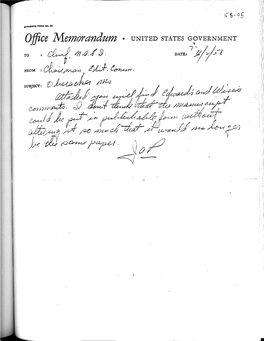 58-05
Office Memorandum • UNITED STATES GOVERNMENT
TO : Chief, M.O.L.S.
DATE: 7/4/58
FROM : Chairman, Edit. Comm.
SUBJECT: Oberacker ms
Attached you will find Edwards and Wise's
comments. I don't think that the manuscript
could be put in publishable form without
altering it so much that it would no longer
be the same paper.